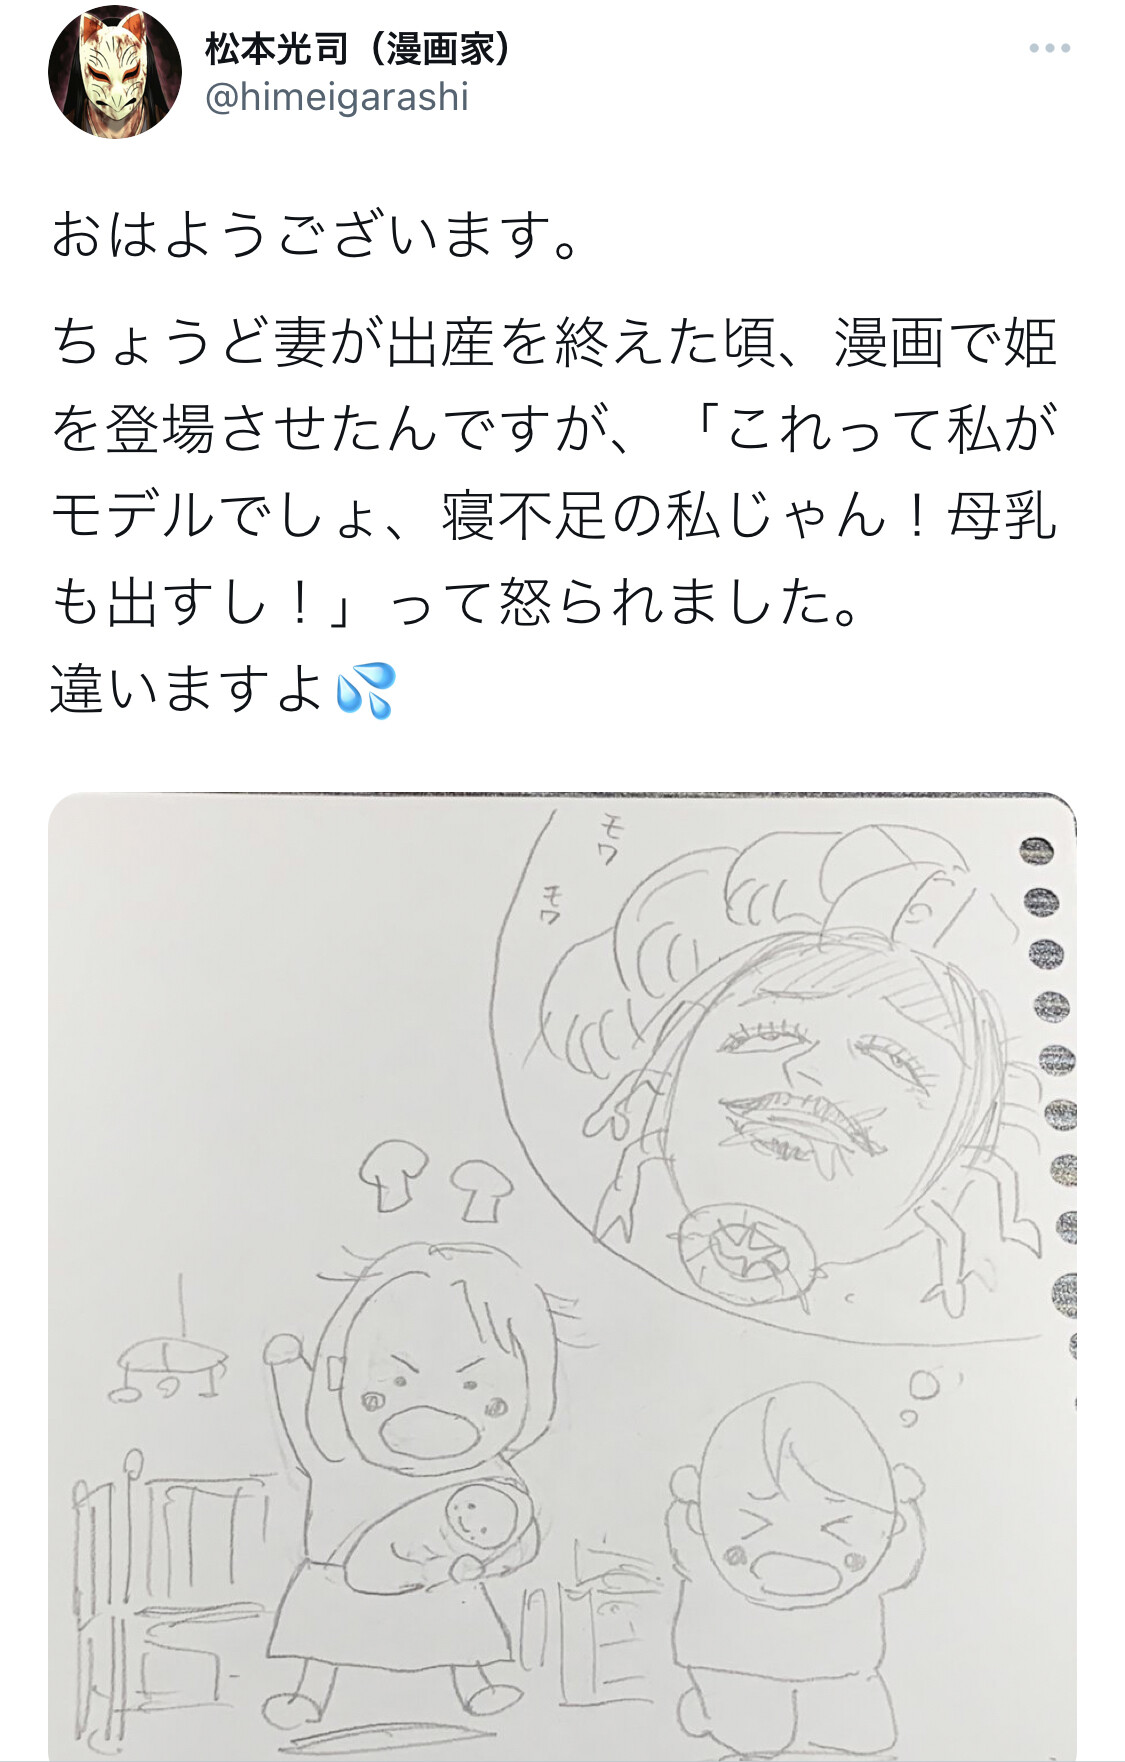 松本光司（漫画家）
@himeigarashi
おはようございます。
ちょうど妻が出産を終えた頃、漫画で姫
を登場させたんですが、「これって私が
モデルでしょ、寝不足の私じゃん！母乳
も出すし！」って怒られました。
違いますよ💦
モワ
モワ